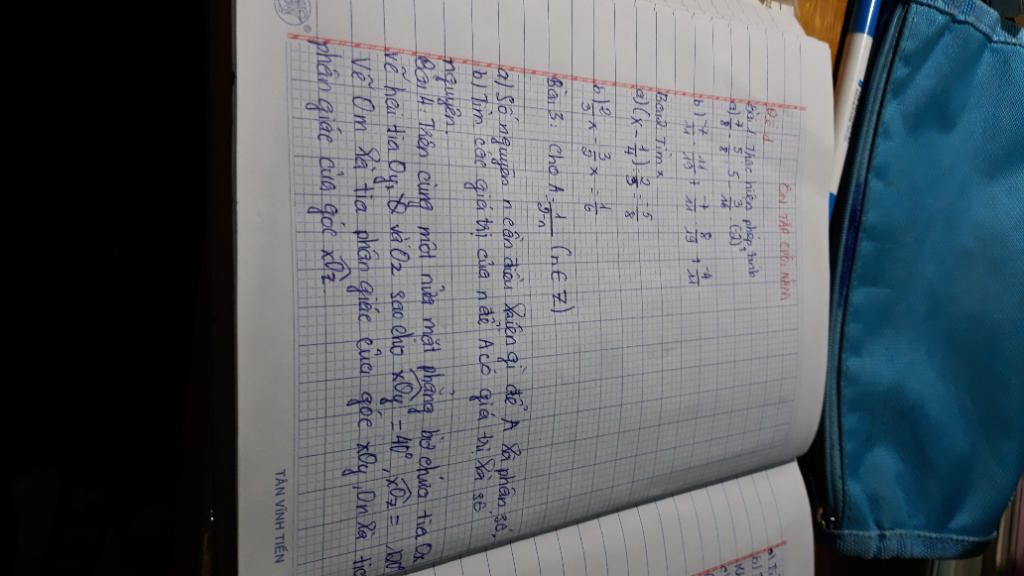 ÔN TẬP CUỐI NĂM
Đề 1
Bài 1 Thực hiện phép tính
a) 7/8 - 5/8 : 5 - 3/16 . (-2)²
b) 7/ - 11/19 + -7/ . 8/19 + -4/
Bài 2 Tìm x
a) (x - 1/4) : 2/3 = -5/8
b) 2/3 x - 3/5 x = 1/6
Bài 3: Cho A = (n ∈ Z)
a) Số nguyên n cần điều kiện gì để A là phân số,
b) Tìm các giá trị của n để A có giá trị là số
nguyên.
Bài 4 Trên cùng một nửa mặt phẳng bờ chứa tia Ox
vẽ hai tia Oy, và Oz sao cho xOy = 40°, xOz = 100°
Vẽ Om là tia phân giác của góc xOy, On là tia
phân giác của góc xOz
TÂN VĨNH TIẾN